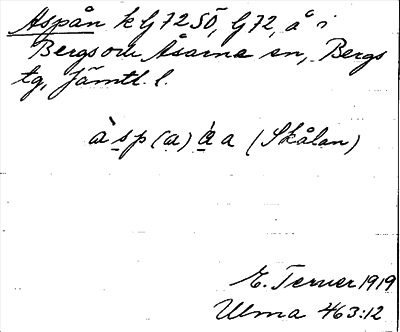 Aspån k G 72 SÖ, G 72, å i
Bergs om Åsarne sn, Bergs
tg, Jämtl. l.
àsp(a)áa (Skålan)
E. Terner 1919
Ulma 463:12